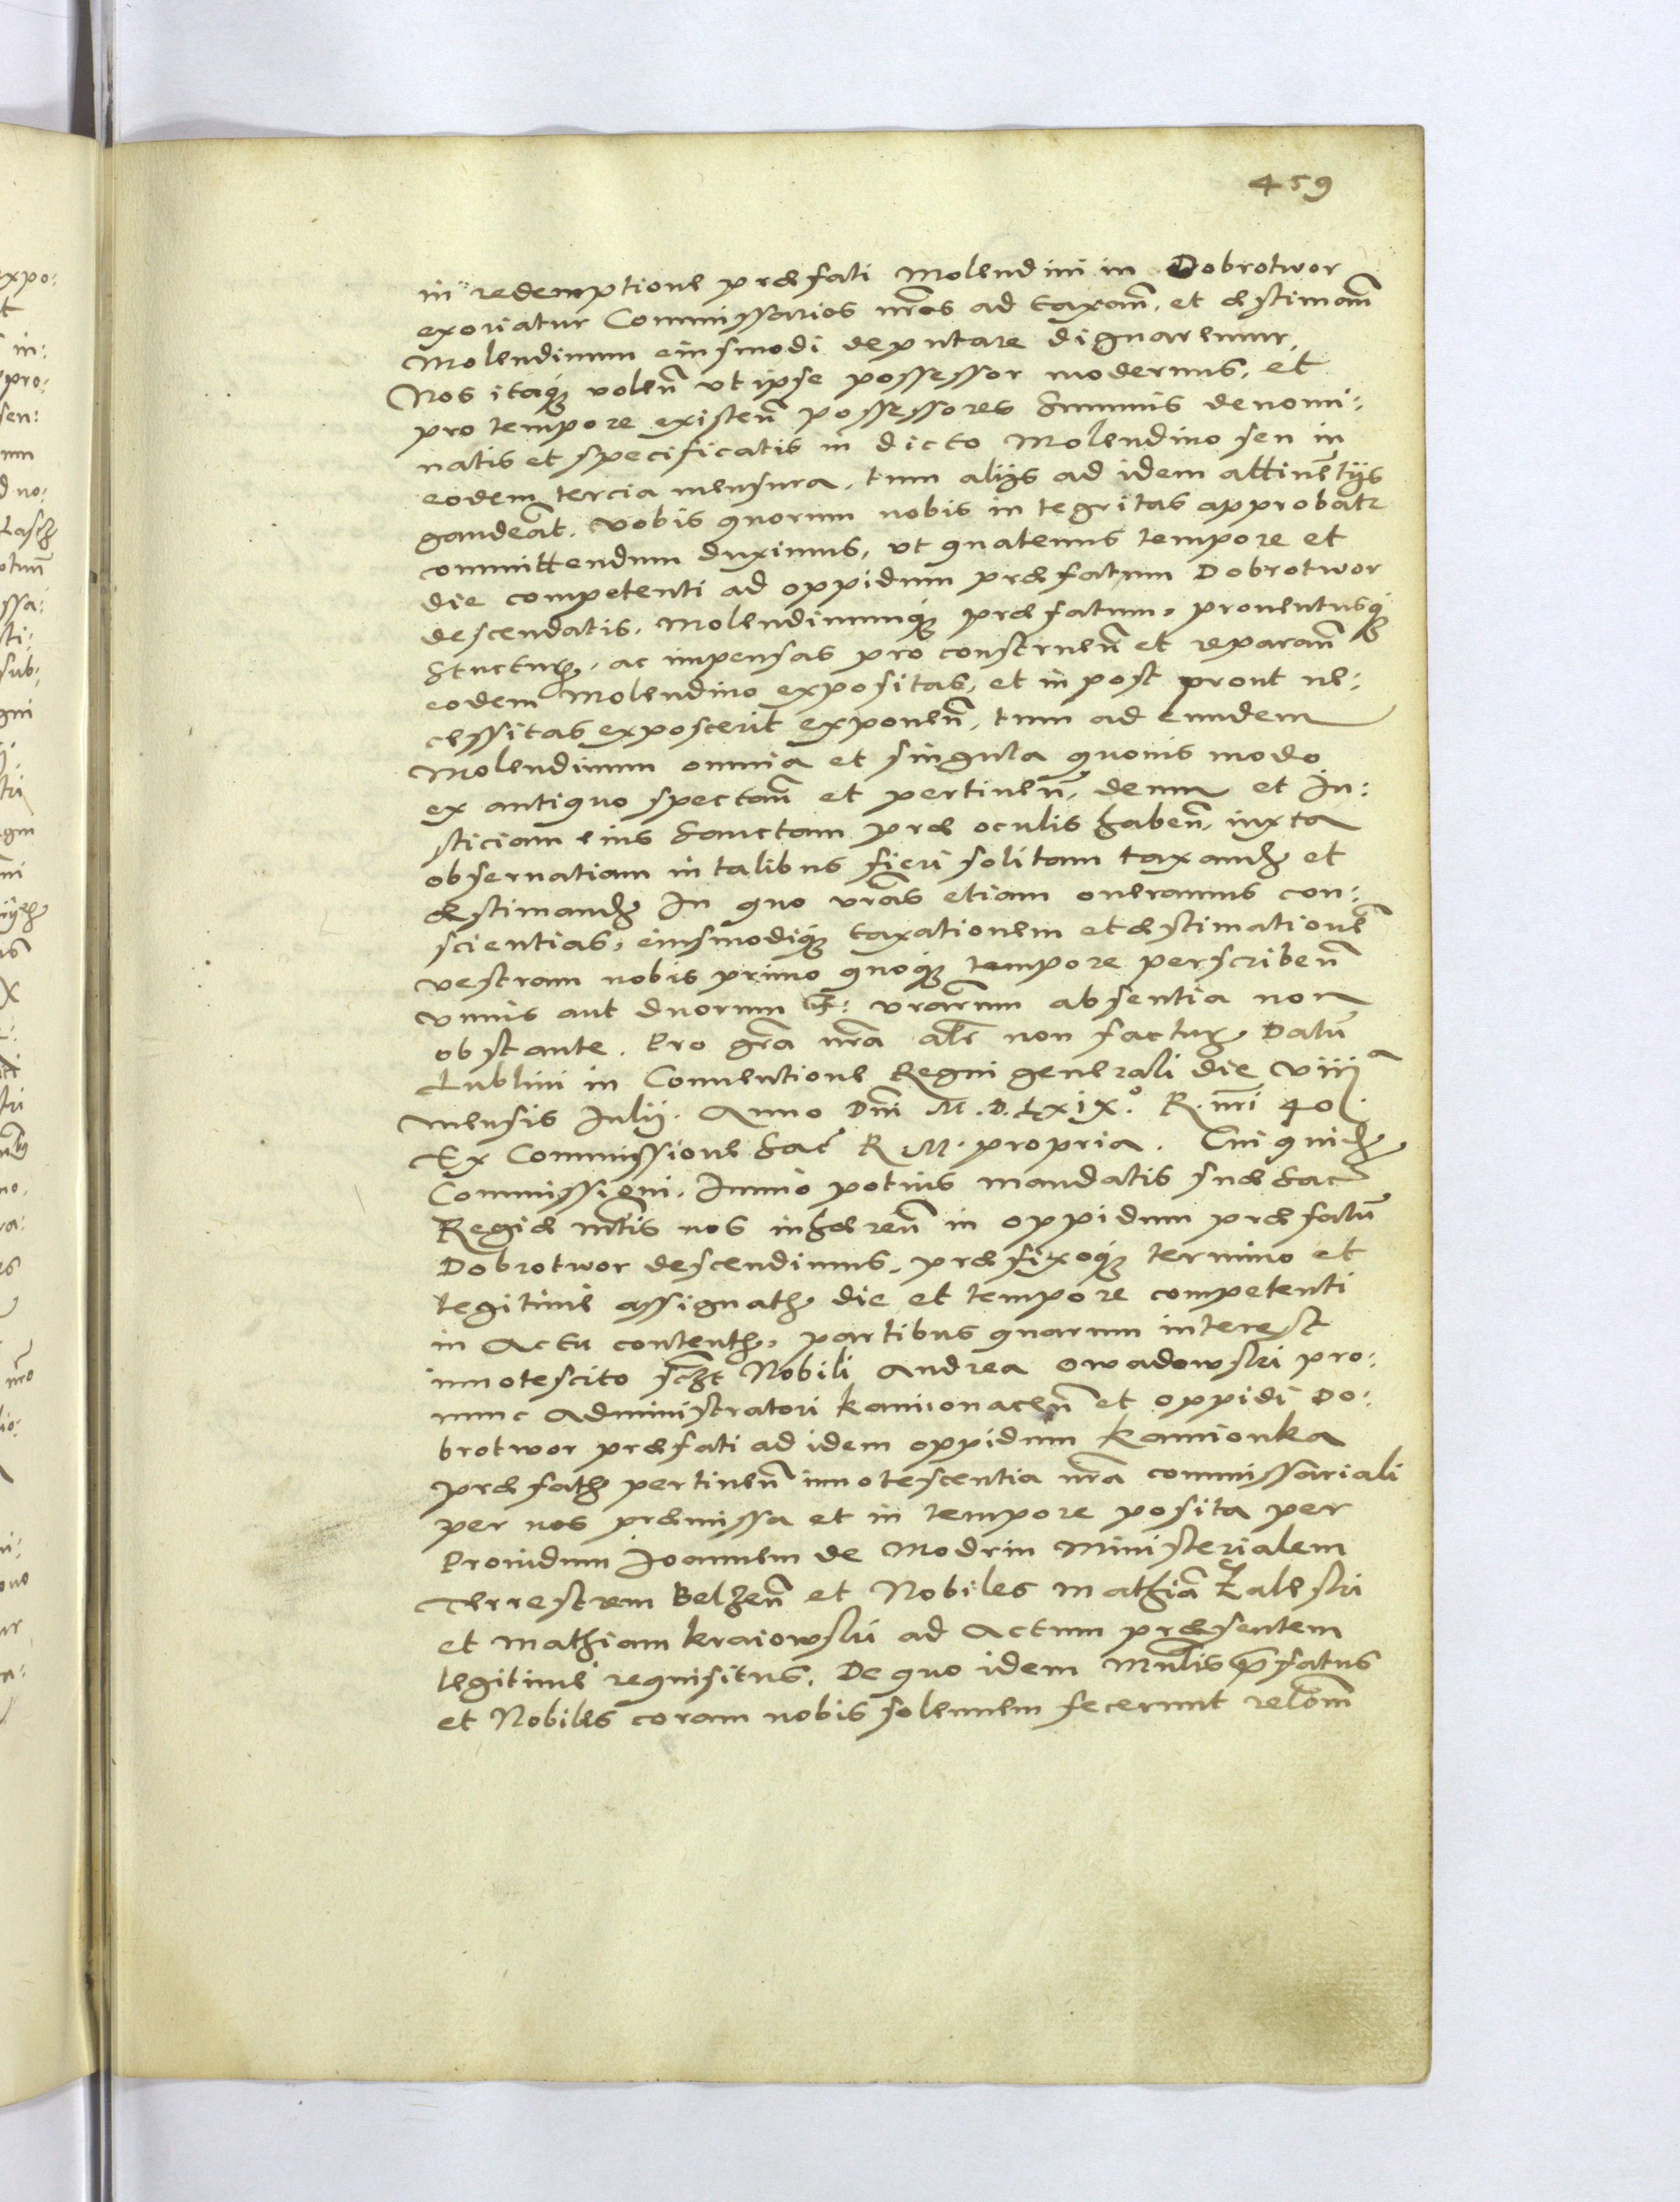 459
in redemptione præfati Molendini in Dobrotwor
exoriatur Commissarios nr̄os ad taxan̄, et æstiman̄
Molendinum eiusmodi deputare dignaremur,
Nos itaqꝫ volen̄ ut ipse possessor modernus, et
pro tempore existen̄ possessores summis denomi:
natis et specificatis in dicto Molendino seu in
eodem tercia mensura, tum alijs ad idem attinētijs
gaudeāt. Vobis quorum nobis integritas approbatr
committendum duximus, ut quatenus tempore et
die competenti ad oppidum præfatum Dobrotwor
descendatis, Molendinumqꝫ præfatum, prouentusqꝫ
Structuꝝ, ac impensas pro construen̄ et reparan̄
eodem Molendino expositas, et in post prout ne:
cessitas exposcerit exponen̄, tum ad eundem
Molendinum omnia et singula quouis modo
ex antiquo spectan̄ et pertinen̄, deum et Ju:
sticiam eius Sanctam præ oculis haben̄, iuxta
obseruatiam in talibus fieri solitam taxandꝫ et
æstimandꝫ In quo vr̄as etiam oneramus con:
scientias, eiusmodiqꝫ taxationem et æstimationē
vestram nobis primo quoqꝫ tempore perscriben̄
vnius aut duorum F: vr̄arum absentia non
obstante. Pro gr̄a nr̄a alr̄ non factuꝝ. Datū
Lublini in Conuentione Regni generali die viij ͣ
mensis Julij. Anno Dn̄i M.D.Lxix.º R. nr̄i 40.
Ex Commissione Sac̄ R M. propria. Cui quidꝫ
Commissioni, Immo potius mandatis suæ Sac̄
Regiæ mt̄is nos inhæren̄ in oppidum præfatū
Dobrotwor descendimus, præfixoqꝫ termino et
legitime assignatꝫ die et tempore competenti
in Actu contentꝫ, partibus quarum interest
innotescito sc̄ꝫt Nobili Andrea Owadowski pro:
nunc Administratori Kamionacen̄ et oppidi Do:
brotwor præfati ad idem oppidum Kamionka
præfatꝫ pertinen̄ innotescentia nr̄a commissariali
per nos præmissa et in tempore posita per
Prouidum Joannem de Modrin Ministerialem
Terrestrem Belzen̄ et Nobiles Mathiā Zaleski
et Mathiam Kraiowski ad Actum præsentem
legitime requisitus, De quo idem Mn̄lis p̄fatus
et Nobiles coram nobis solennem fecerunt relōm